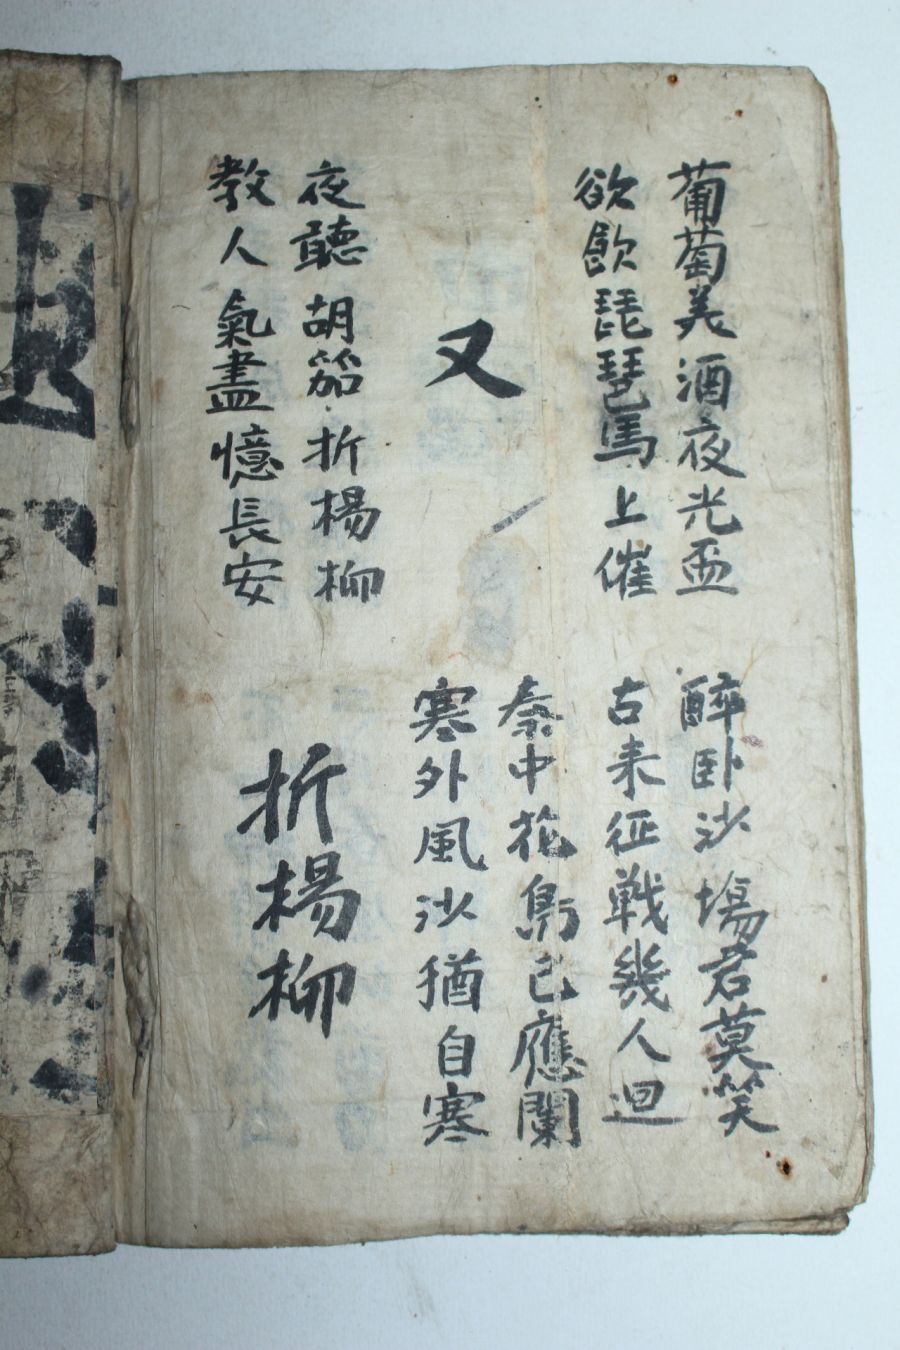 葡萄美酒夜光盃
欲飮琵琶馬上催
醉卧沙塲君莫笑
古来征戰幾人迴
又
秦中花鳥已應闌
寒外風沙猶自寒
夜聽胡笳折楊柳
教人氣盡憶長安
折楊柳